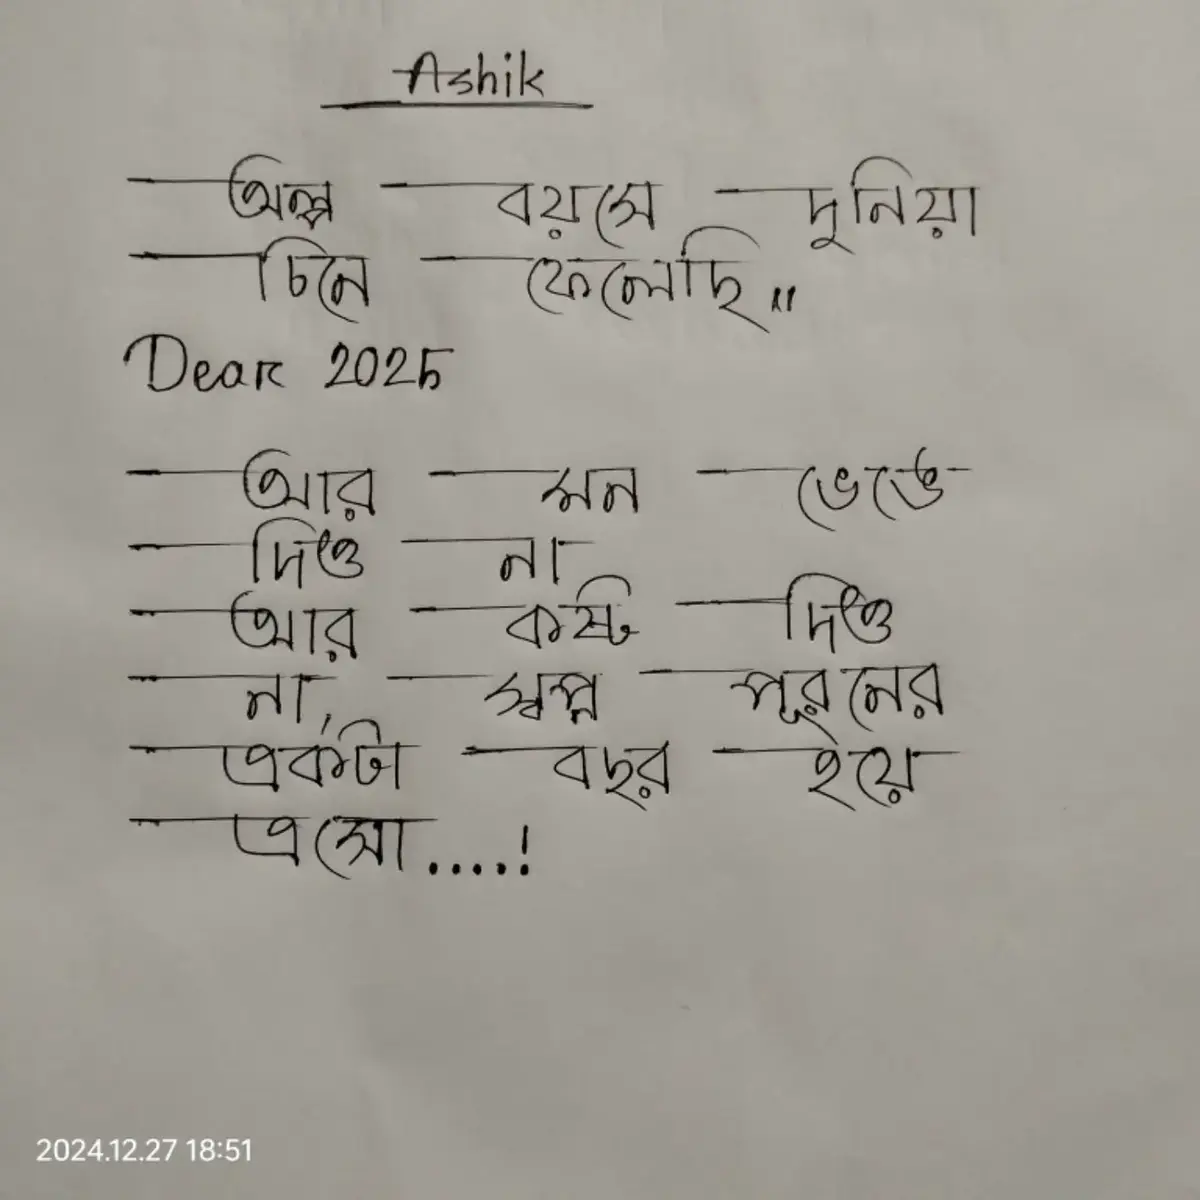 Ashik
অল্প বয়সে দুনিয়া
চিনে ফেলেছি ॥
Dear 2025
আর মন ভেঙে
দিও না
আর কষ্ট দিও
না, স্বপ্ন পূরনের
একটা বছর হয়ে
এসো....!
2024.12.27 18:51